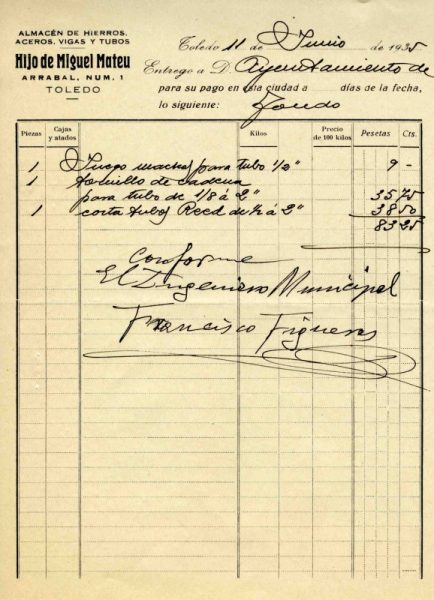 ALMACÉN DE HIERROS,
ACEROS, VIGAS Y TUBOS
Hijo de Miguel Mateu
ARRABAL, NUM. 1
TOLEDO
Toledo 11 de Junio de 1935
Entrego a D. Ayuntamiento de
para su pago en esta ciudad a días de la fecha,
lo siguiente: Toledo
Piezas Cajas y atados Kilos Precio de 100 kilos Pesetas Cts.
1 Juego machos para tubo 1/2" 9 -
1 tornillo de cadena
para tubo de 1/8 á 2" 35 75
1 corta tubos Reed de 1/2 á 2" 38 50
83 25
Conforme
El Ingeniero Municipal
Francisco Figueras